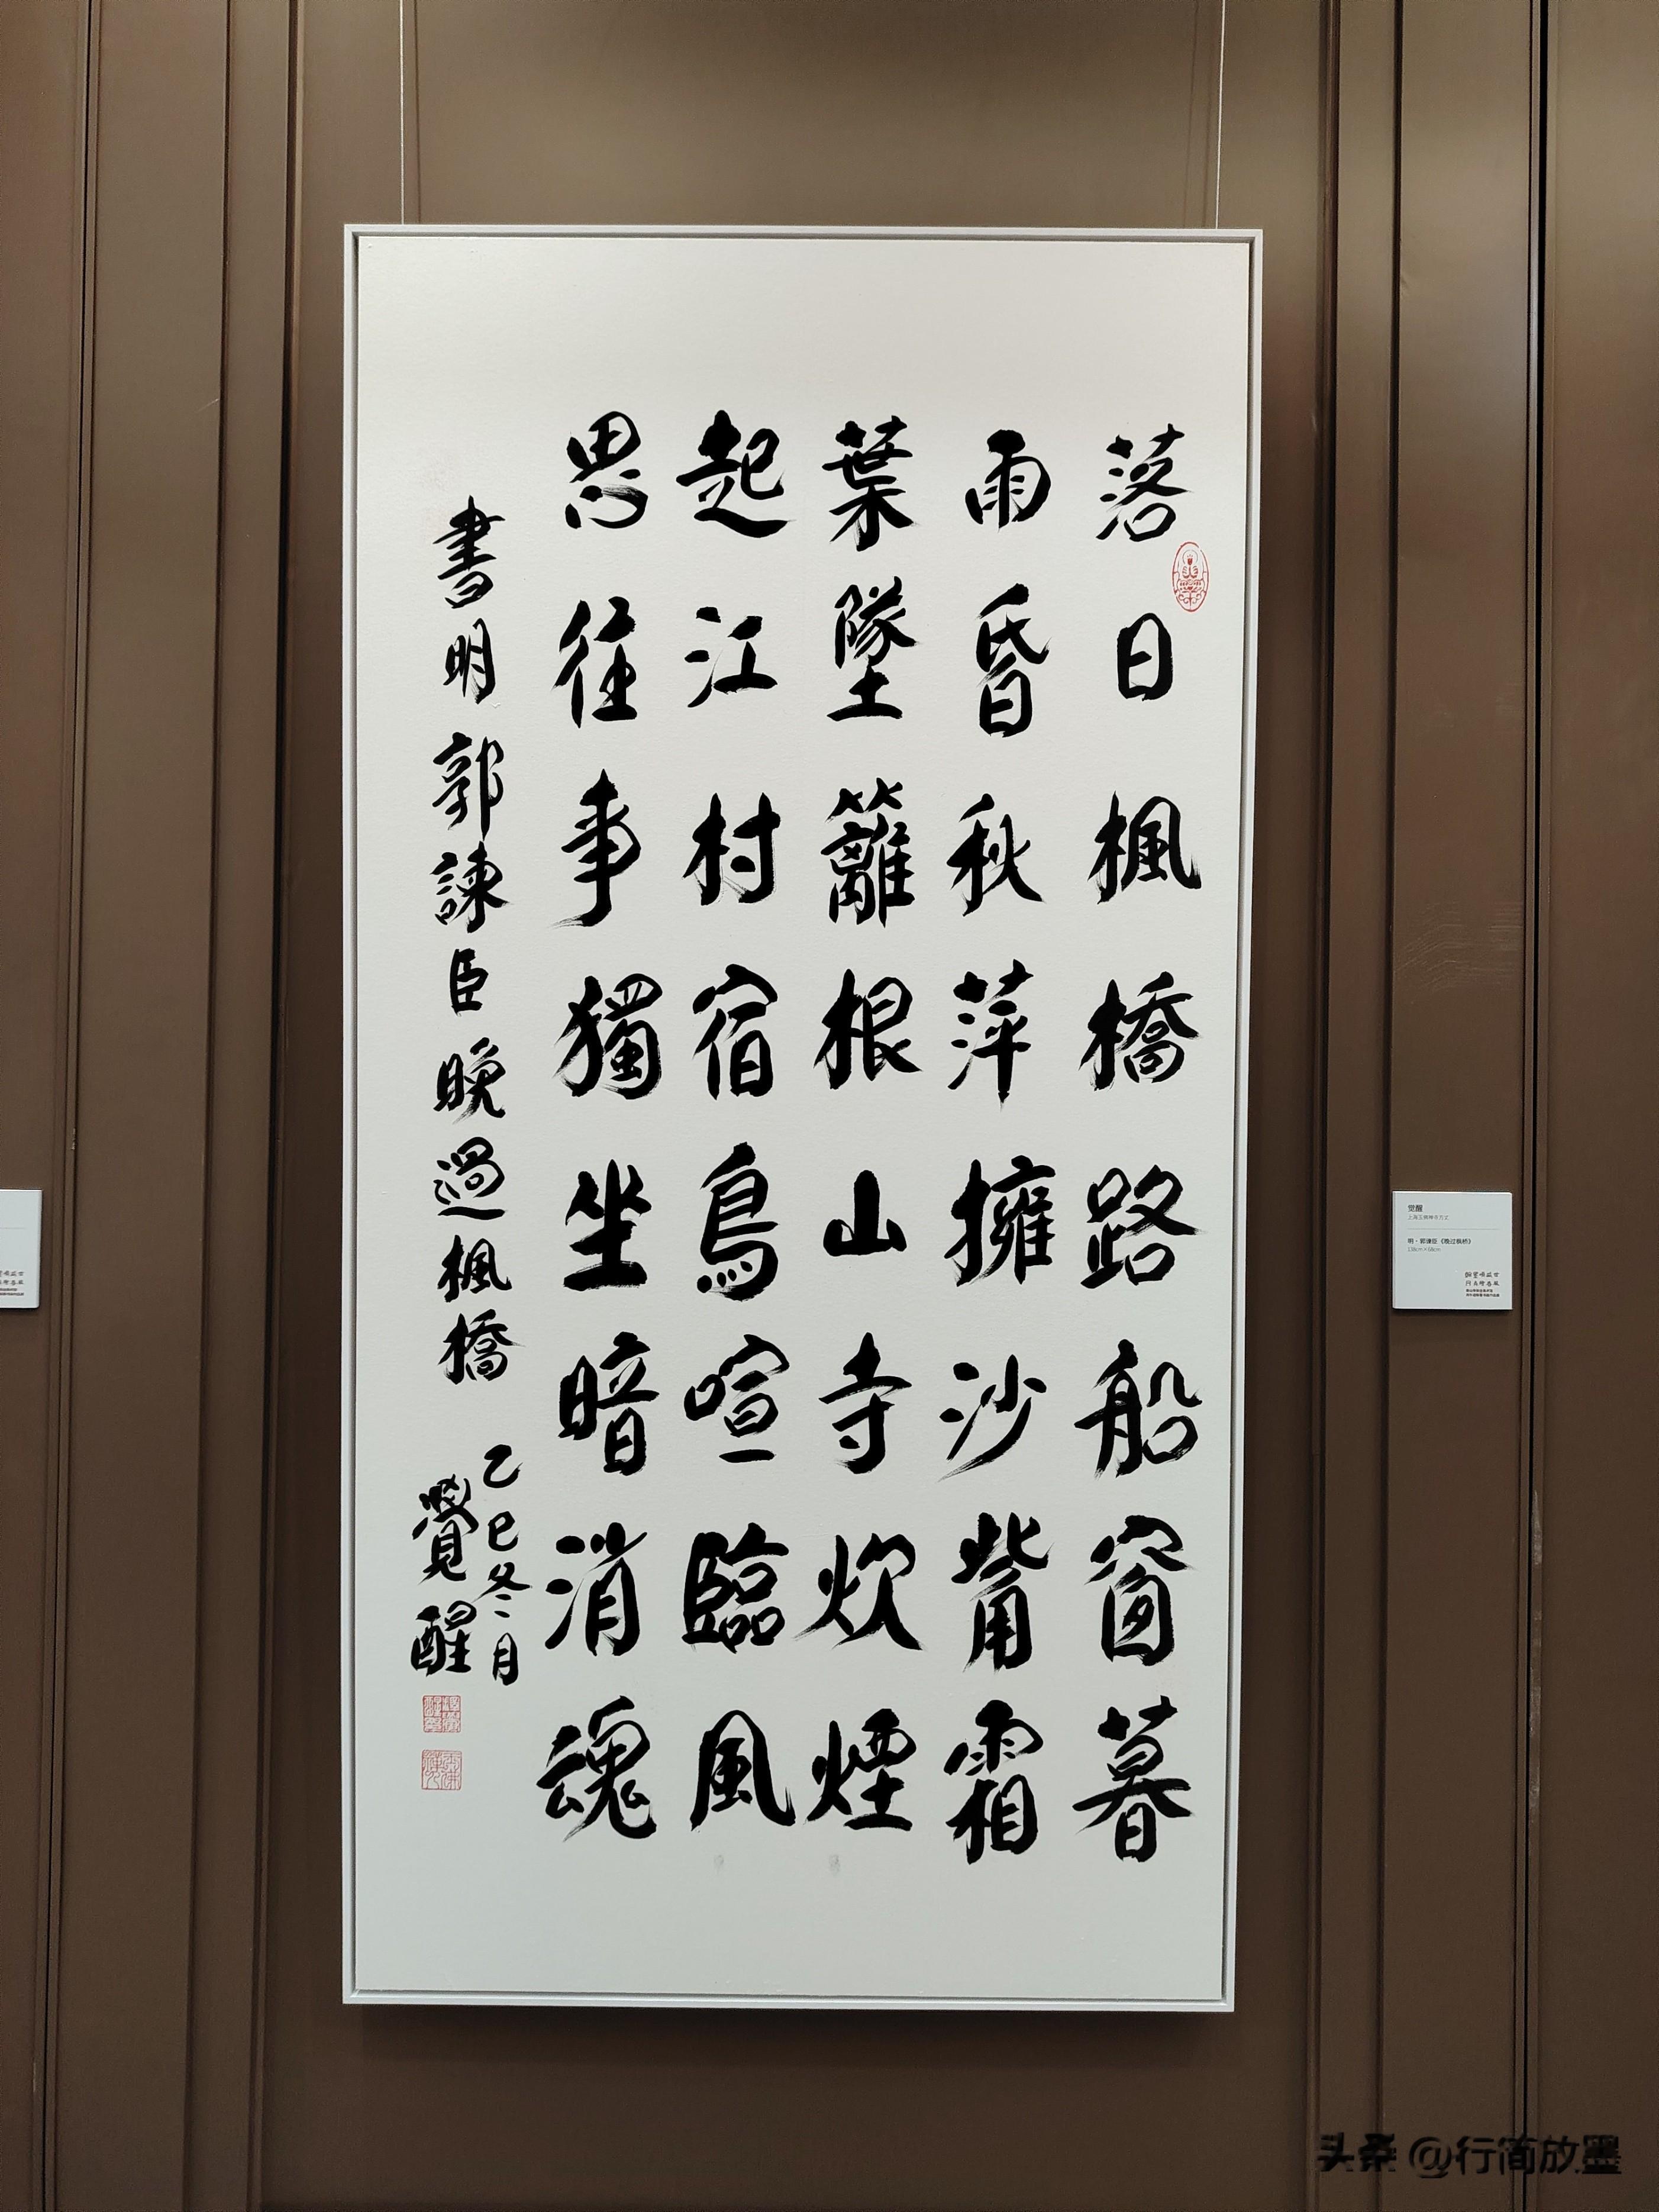 落日楓橋路船窗暮
雨昏秋萍擁沙觜霜
葉墜籬根山寺炊煙
起江村宿鳥喧臨風
思往事獨坐暗消魂
書明郭諫臣晚過楓橋
乙巳冬月
覺醒
觉醒
明·郭谏臣《晚过枫桥》
138cm×68cm
头条 @行简放墨